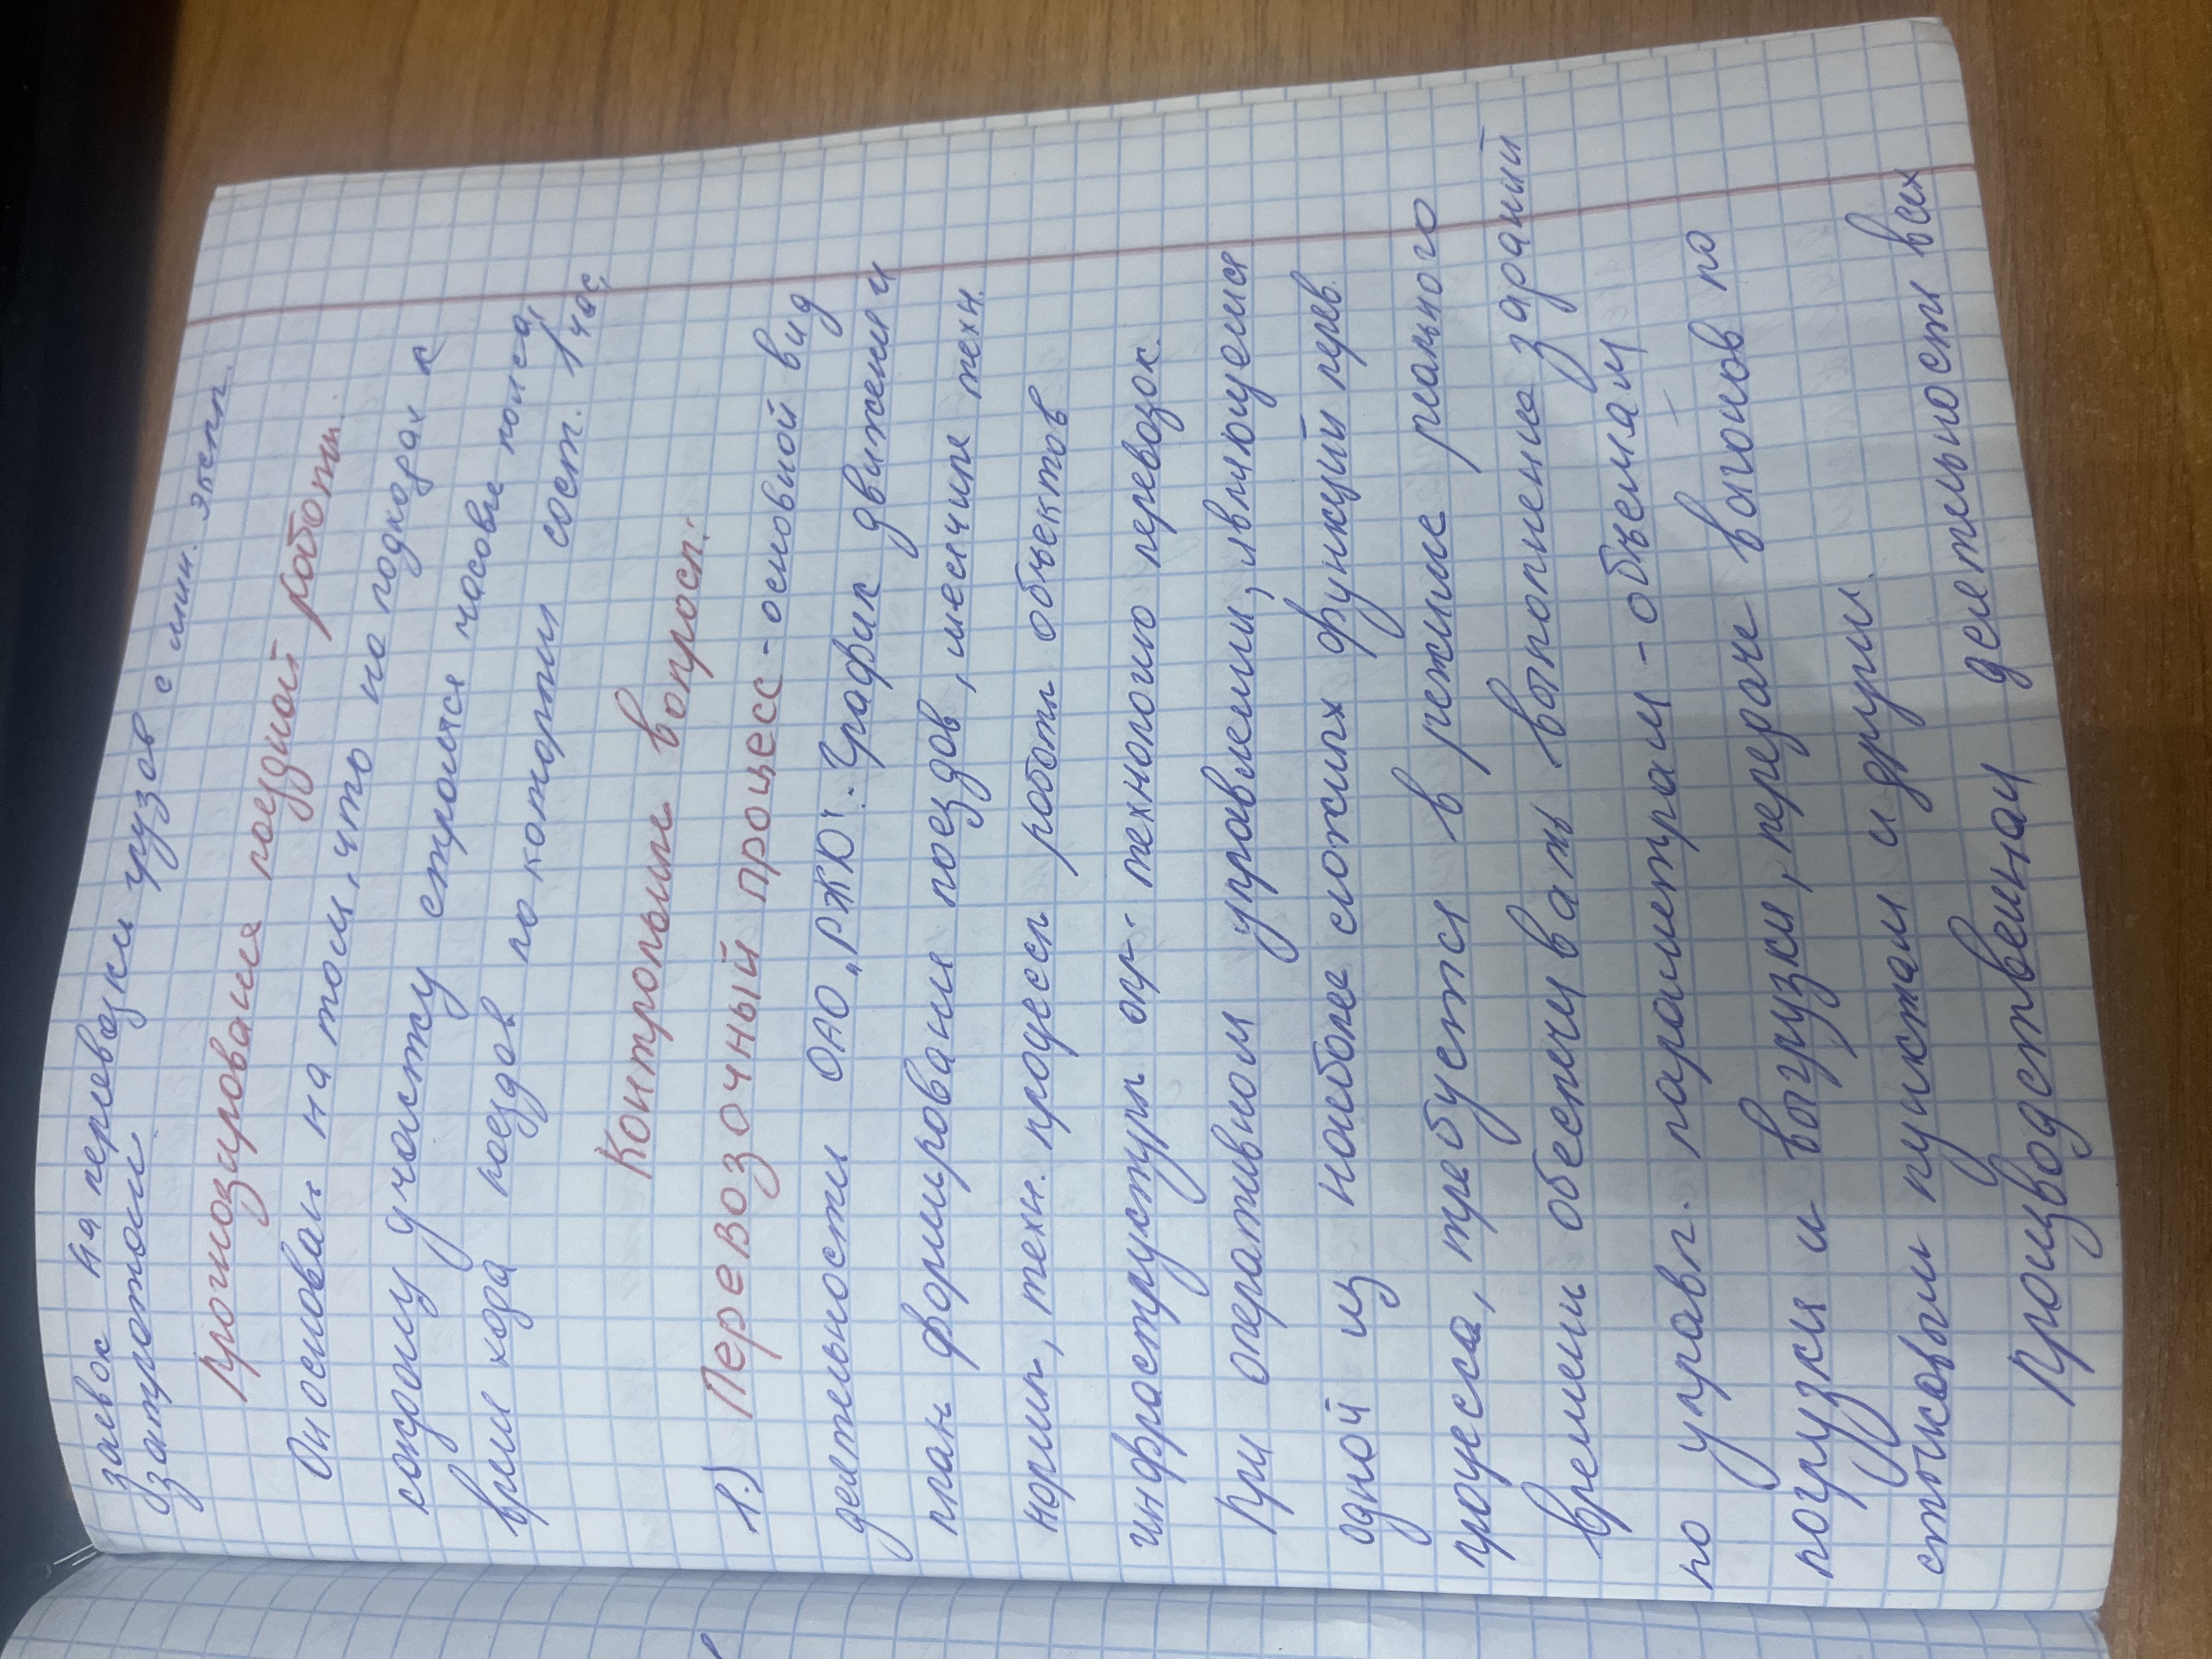 заявок на перевозки грузов с мин. эксп.
затратами.
Прогнозирование поездной работы.
Он основан на том, что на подходах к
каждому участку строятся часовые пояса,
время хода поездов по которым сост. 1 час.
Контрольные вопросы:
1.) Перевозочный процесс - основной вид
деятельности ОАО „РЖЮ": График движения
план формирования поездов, месячные техн.
нормы, техн. процессы работы объектов
инфраструктуры опр. технологию перевозок.
При оперативном управлении, являющемся
одной из наиболее сложных функций перев.
процесса, требуется в режиме реального
времени обеспечивать выполнение заданий
по управл. параметрам - объемам
погрузки и выгрузки, передаче вагонов по
стыковым пунктам и другим.
Производственная деятельность всех